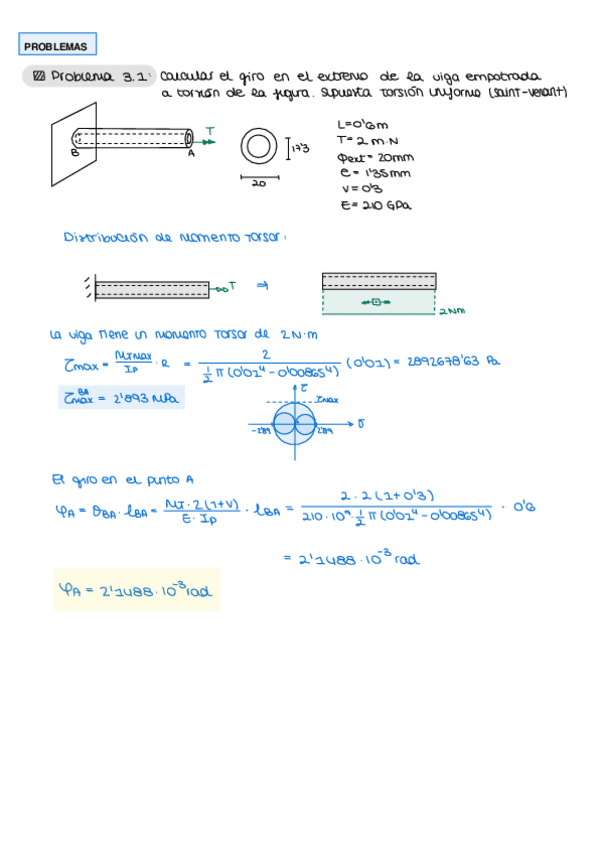 PROBLEMAS
Problema 3.1: Calcular el giro en el extremo de la viga empotrada
a torsión de la figura. Supuesta torsión uniforme (Saint-Venant)
T
B
A
17'3
20
L=0'6m
T= 2 m·N
Φext= 20mm
e = 1'35mm
V= 0'3
E= 210 GPa
Distribución de momento torsor:
T ⇒
2Nm
La viga tiene un momento torsor de 2N·m
τmax = MTMAX/IP · R = 2/(1/2 π(0'01⁴ - 0'00865⁴)) (0'01) = 2892678'63 Pa
τmax BA = 2'893 MPa
τ
τmax
-2'89
2'89
σ
El giro en el punto A
φA = θBA · lBA = MT·2(1+V)/(E·IP) · lBA = 2·2(1+0'3)/(210·10⁹·1/2 π(0'01⁴ - 0'00865⁴)) · 0'6
= 2'1488·10⁻³ rad
φA = 2'1488·10⁻³ rad